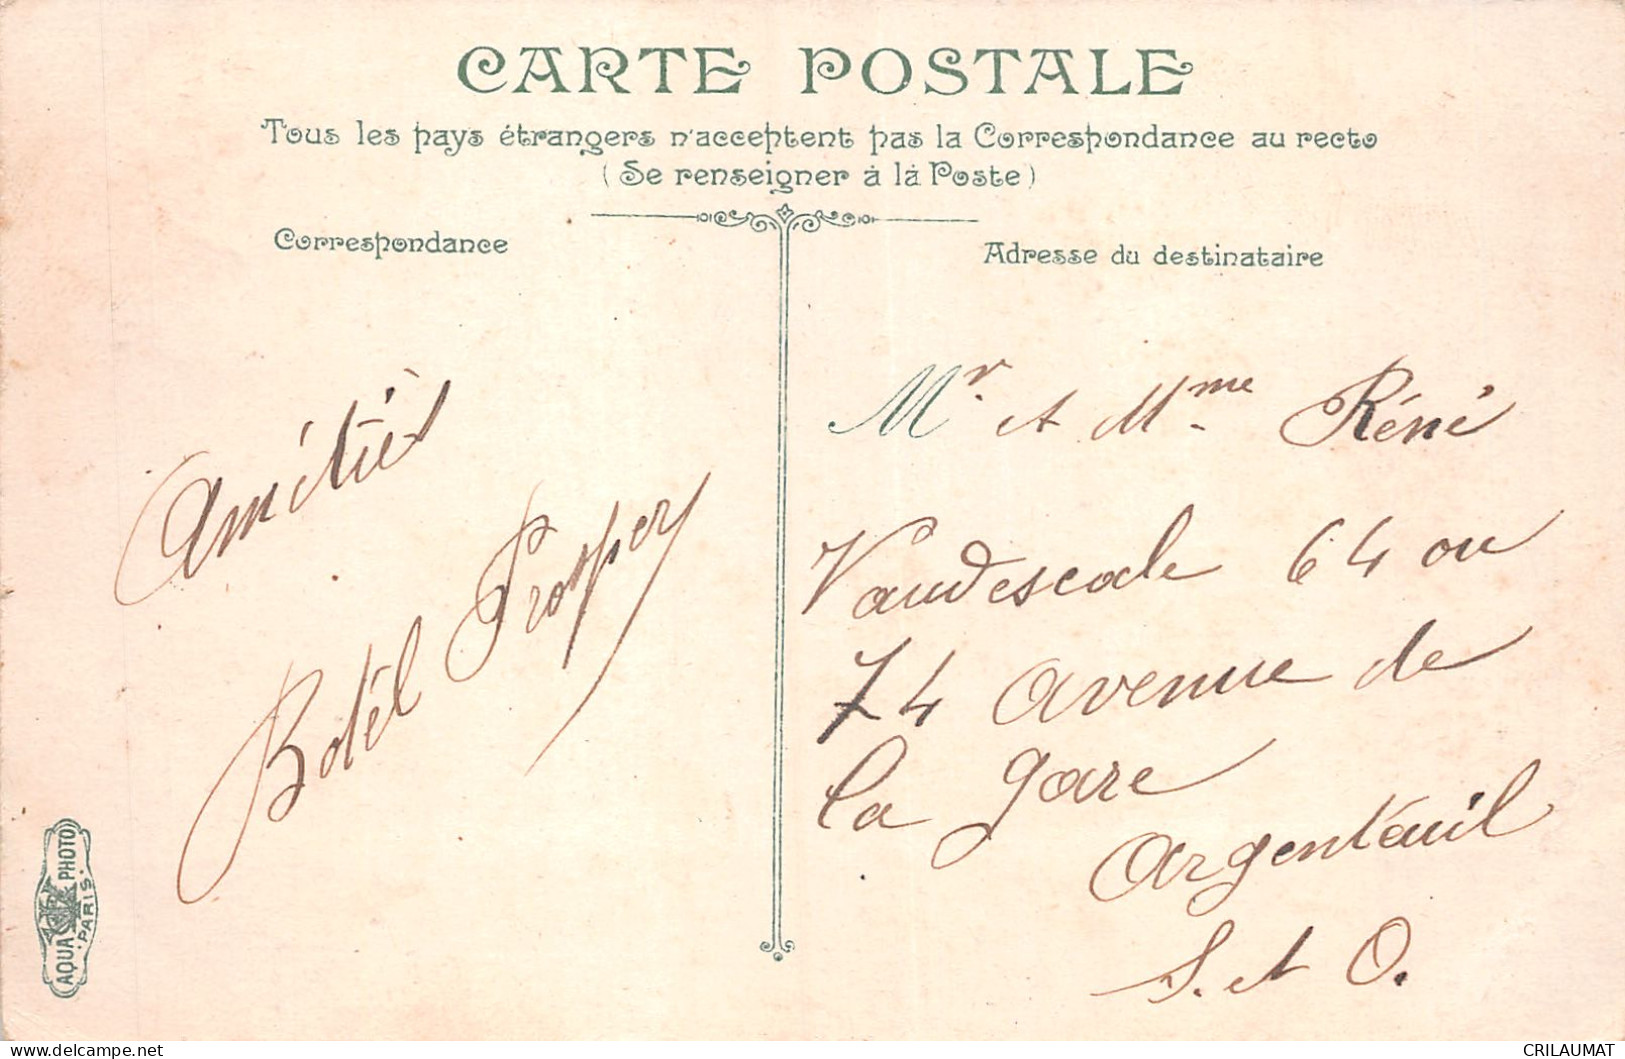 CARTE POSTALE
Tous les pays étrangers n'acceptent pas la Correspondance au recto
(Se renseigner à la Poste)
Correspondance
Adresse du destinataire
Amitiés
Botél Prosper
Mr. et Mme René
Vaudescale 64 ou
74 avenue de
la gare
Argenteuil
S. et O.
AQUA PHOTO
PARIS
CRILAUMAT